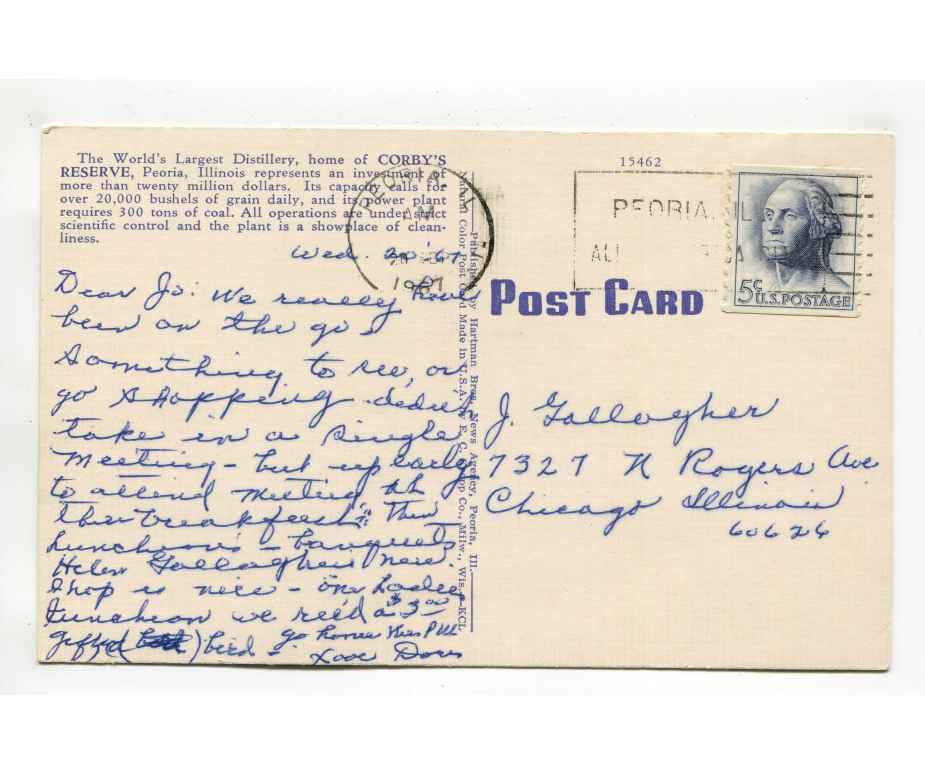 The World's Largest Distillery, home of CORBY'S
RESERVE, Peoria, Illinois represents an investment of
more than twenty million dollars. Its capacity calls for
over 20,000 bushels of grain daily, and its power plant
requires 300 tons of coal. All operations are under strict
scientific control and the plant is a showplace of clean-
liness.
Wed. 20 '67
Dear Jo: We really have
been on the go
Something to see, or
go shopping didn't
take in a single
Meeting - but up early
to attend Meeting
then breakfast Then
Luncheons - banquets
Helen Gallagher's new
shop is nice - one Ladies
Luncheon we rec'd a $3.00
gifted ( ) bird -
go home this PM
Love Doris
Published by Hartman Bros. News Agency, Peoria, Ill.
Natural Color Post Card Made in U.S.A. by E. C. Kropp Co., Milw., Wis.-KCL
15462
PEORIA, ILL
AM
20 SEP
1967
PEORIA, IL
ALL
5c
U.S. POSTAGE
POST CARD
J. Gallagher
7327 N Rogers Ave
Chicago Illinois
60626